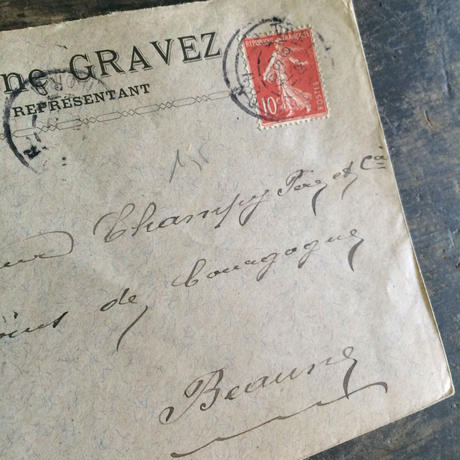 ne GRAVEZ
REPRÉSENTANT
RÉPUBLIQUE FRANÇAISE
10c
POSTES
155
eur Champy Père et Cie
ins de Bourgogne
Beaune